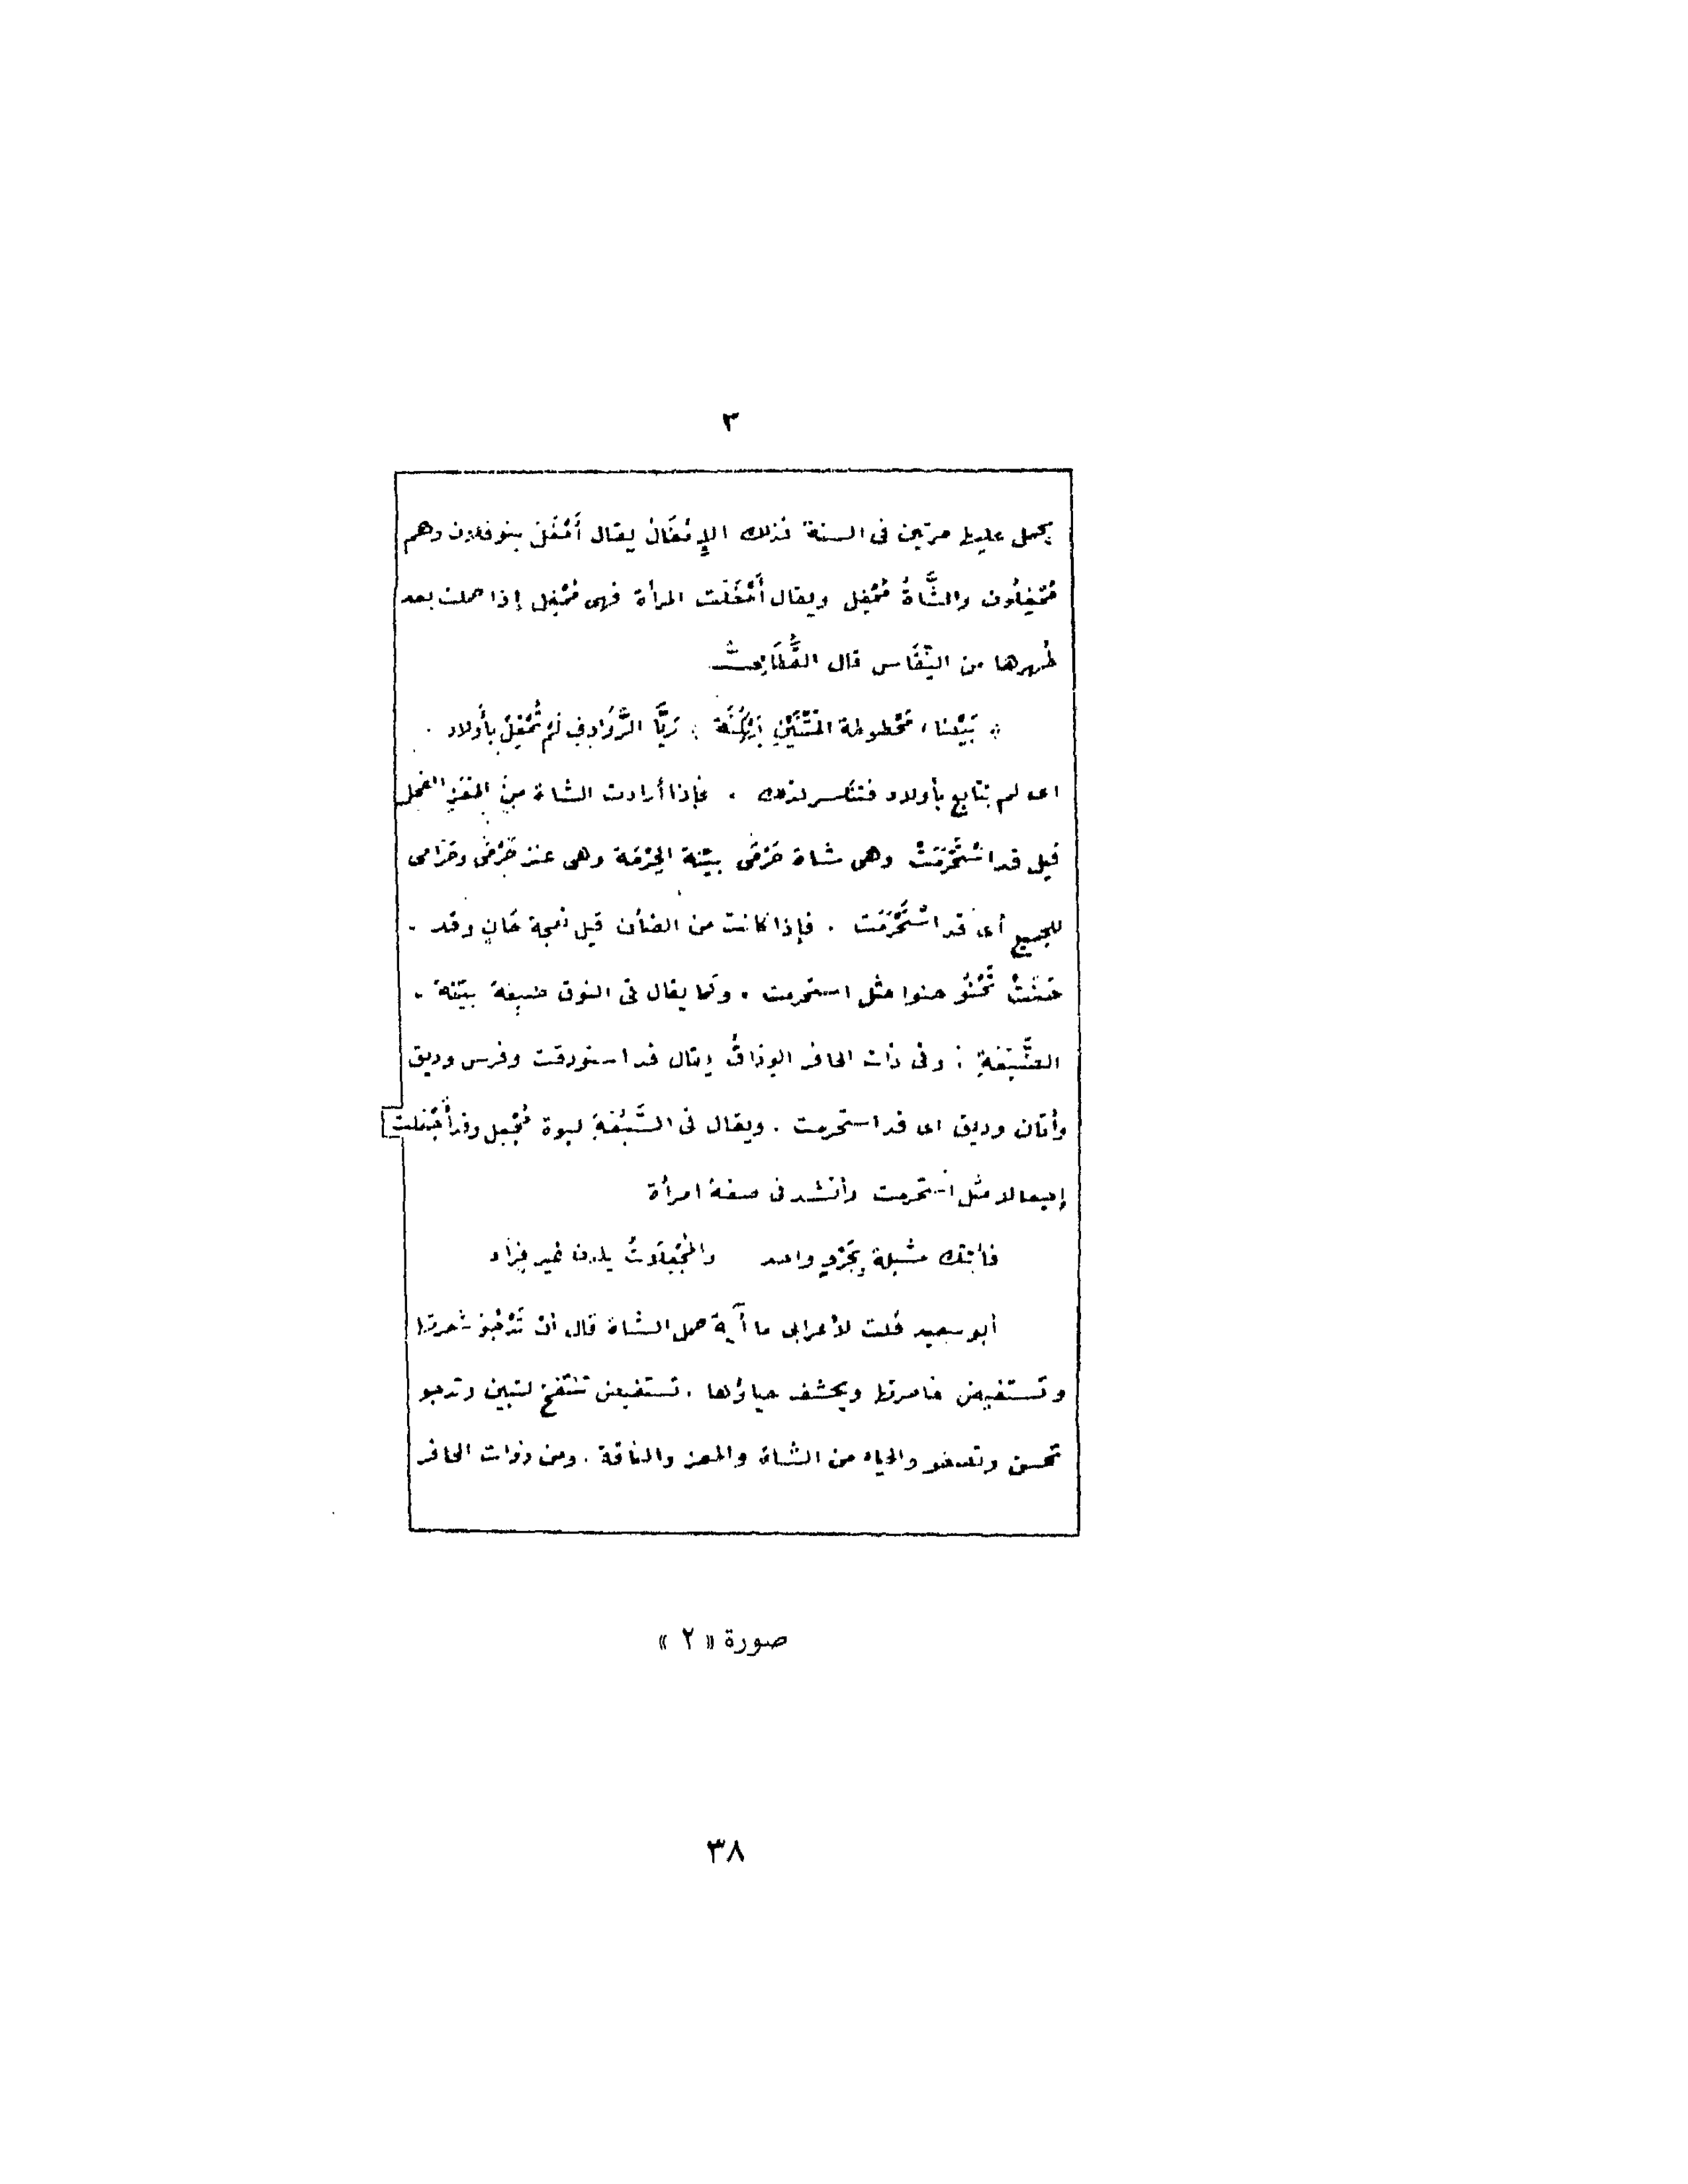 ٣
يحمل عليها مرتين فى السنة فذلك الإِمْغَالُ يقال أَمْغَلَ بنو فلان وهم
مُمْغِلُون والشَّاةُ مُمْغِل ويقال أَمْغَلَت المرأة فهى مُمْغِل إذا حملت بعد
طُهرها من النِّفَاس قال القُطَامِىّ
* بَيْضَاء مَحْطوطة المَتْنَيْنِ بَهْكَنَة * رَيَّا الرَّوَادِفِ لَمْ تُمْغِلْ بأَولاد .
اى لم يتابع بأولاد فتنكسر لذلك . فإذا أرادت الشاة مِنَ المَعَزِ الفحل
قيل قد اسْتَحْرَمَتْ وهى شاة حَرْمَى بيّنة الحِرْمَة وهى عنز حَرْمَى وحَرَامى
للجميع أى قد اسْتَحْرَمَت . فإذا كانت من الضأن قيل نعجة حَانٍ وقد -
حَنَتْ تَحْنُو حنوا مثل استحرمت . وكما يقال فى النوق ضبعة بيّنة -
الضَّبَعَةِ : وفى ذات الحافر الوِدَاقُ يقال قد استودقت وفرس وديق
وأتان وديق اى قد استحرمت . ويقال فى السَّبُعَةِ لبوة مُجْعِل وقد أَجْعَلت
إجعالا مثل استحرمت وأنشد فى صفة امرأة
فأتتك مشبلة بِجَرْوٍ واحد والمُجْعِلَاتُ يلدن غير فِرَاد
أبو سعيد قلت لأعرابى ما آية حمل الشاة قال أن تَدْجُوَ شعرتها
وتستفيض خاصرتها ويحشف حياؤها . تستفيض تنتفخ لتبين وتدجو
تحسن وتصفو والحياء من الشاة والمعز والناقة . ومن ذوات الحافر
صورة « ٢ »
٣٨